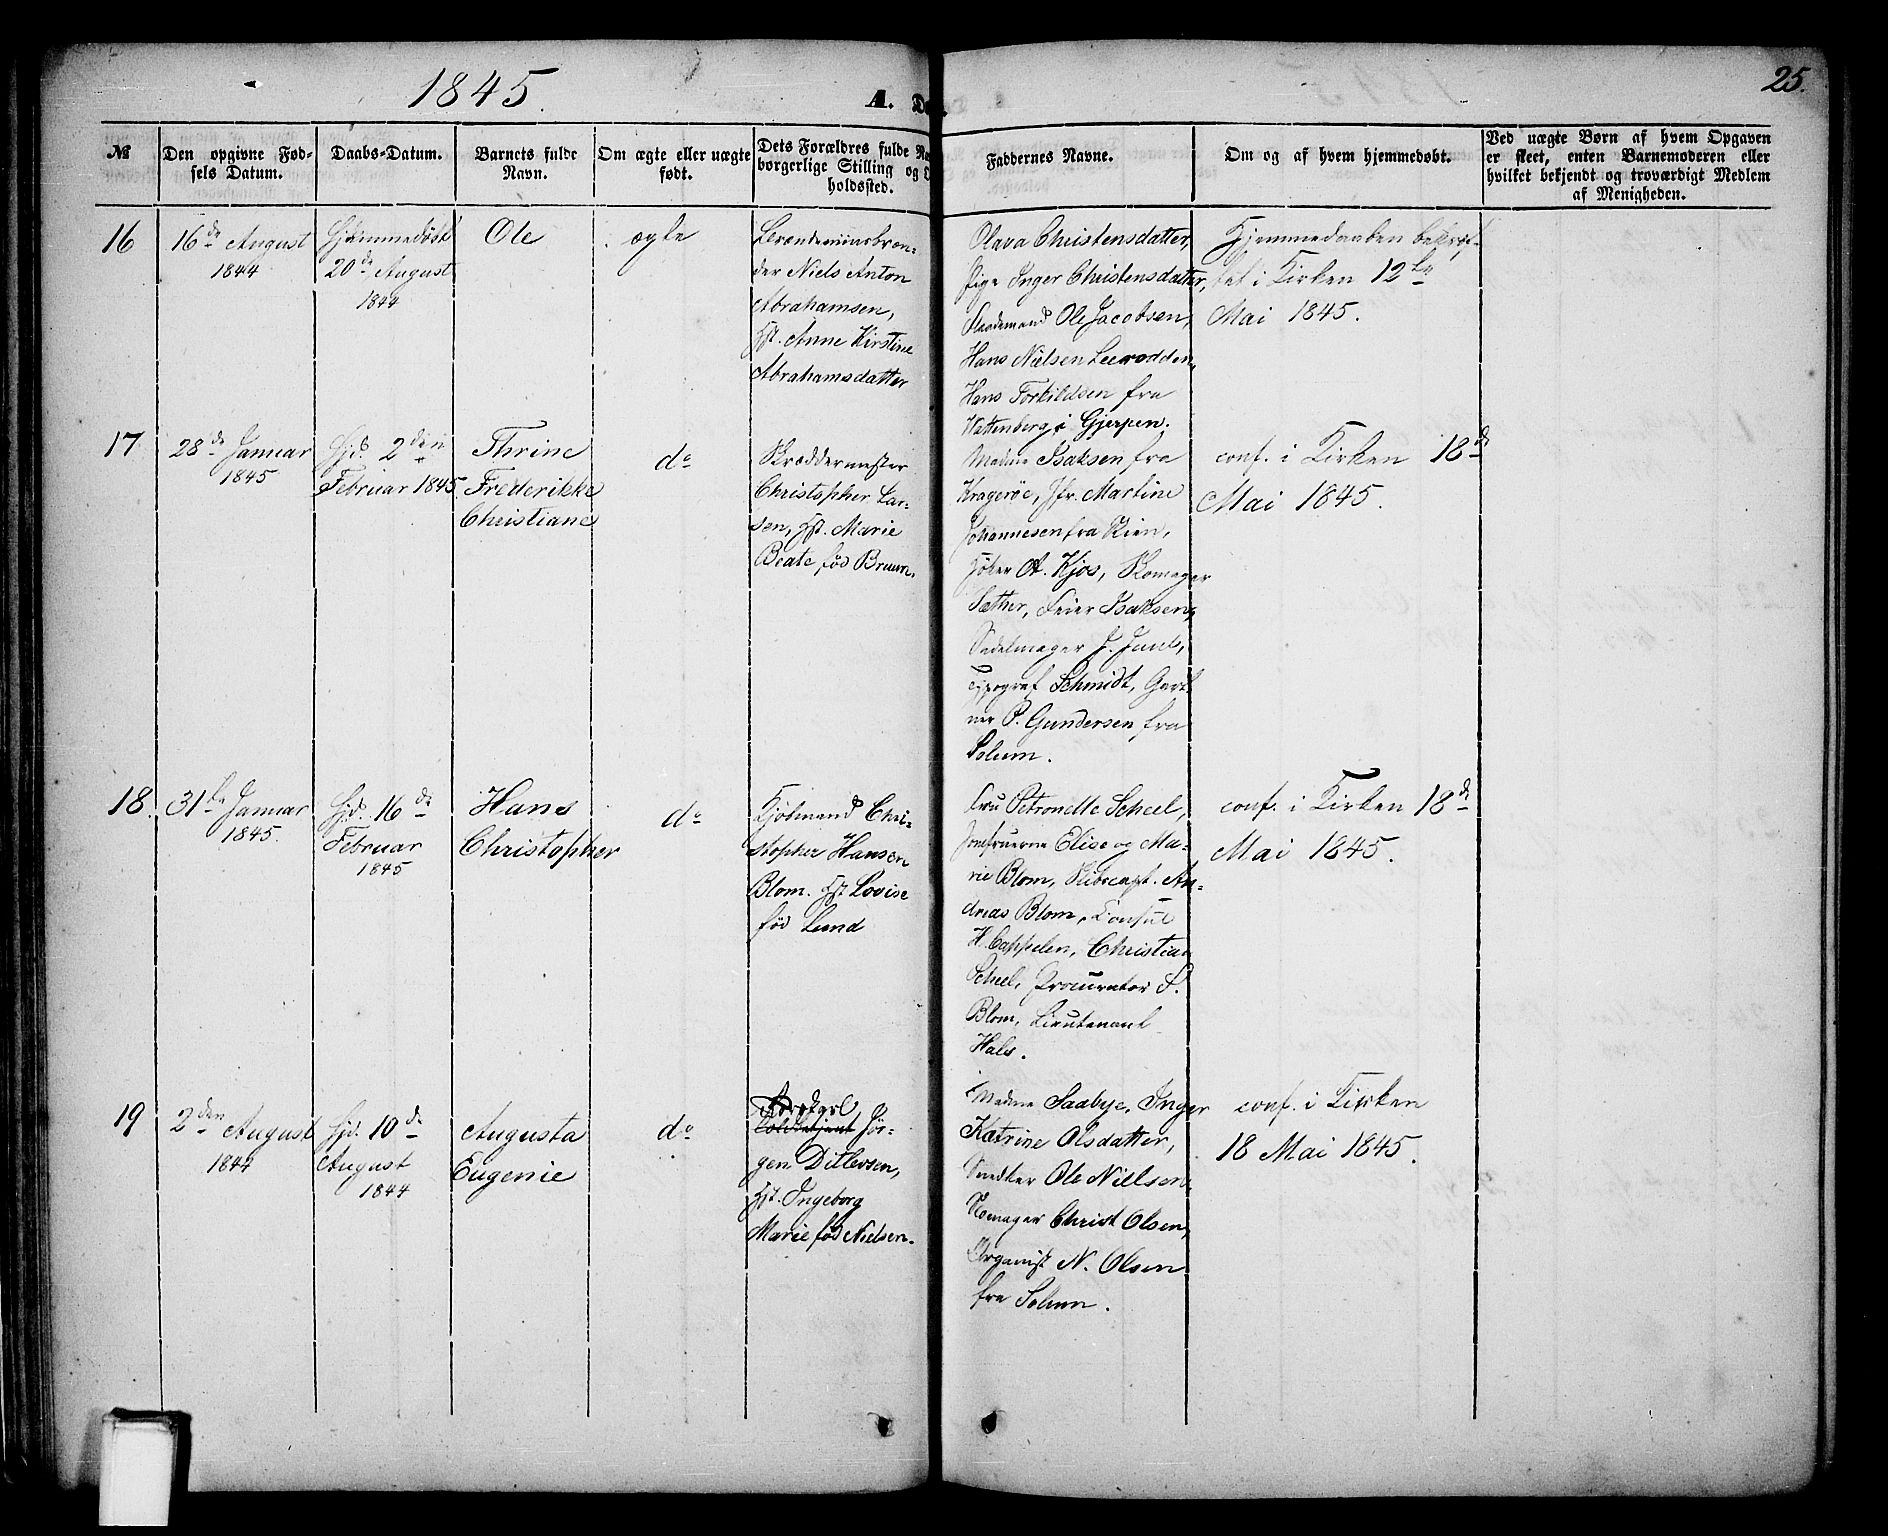 1845.
A. D
25.
№
Den opgivne Fød-
sels Datum.
Daabs-Datum.
Barnets fulde
Navn.
Om ægte eller uægte
født.
Dets Forældres fulde Na
borgerlige Stilling og O
holdssted.
Faddernes Navne.
Om og af hvem hjemmedøbt.
Ved uægte Børn af hvem Opgaven
er skeet, enten Barnemoderen eller
hvilket bekjendt og troværdigt Medlem
af Menigheden.
16
16de August
1844
Hjemmedøbt
20de August
1844
Ole
ægte
der Niels Anton
Abrahamsen,
Hst. Anne Kirstine
Abrahamsdatter
Olava Christensdatter,
Pige Inger Christensdatter,
Ole Jacobsen,
Hans Nielsen
Hans Torkildsen fra
i Gjerpen.
Hjemmedaaben bekræf-
tet i Kirken 12te
Mai 1845.
17
28de Januar
1845
Hjd. 2den
Februar 1845
Thrine
Frederikke
Christiane
do
Skræddermester
Christopher Lar-
sen, Hst. Marie
Beate fød Bruun.
Madme Isaksen fra
Kragerøe, Jfr. Martine
Johannesen fra Skien,
A. Kjos, Skomager
Sæther, Feier Isaksen,
Sadelmager J. Juul,
Typograf Schmidt, Gart
ner P. Gundersen fra
Solum.
conf. i Kirken 18de
Mai 1845.
18.
31te Januar
1845.
Hjd. 16de
Februar
1845
Hans
Christopher
do
Kjøbmand Chri-
stopher Hansen
Blom. Hst Lovise
fød Lund
Fru Petronelle Scheel,
Jomfruerne Elise og Ma-
rie Blom, Skibscapt. An-
dreas Blom, Consul
H. Cappelen, Christian
Scheel, Procurator S.
Blom, Lieutenant
Hals.
conf. i Kirken 18de
Mai 1845.
19
2den August
1844
Hjd. 10de
August
1844
Augusta
Eugenie
do
Jör-
gen Ditlevsen,
Hst. Ingeborg
Marie fød Nielsen.
Madme Saabye, Inger
Katrine Olsdatter,
Snedker Ole Nielsen
Skomager Christ Olsen,
Organist N. Olsen
fra Solum.
conf. i Kirken
18 Mai 1845.